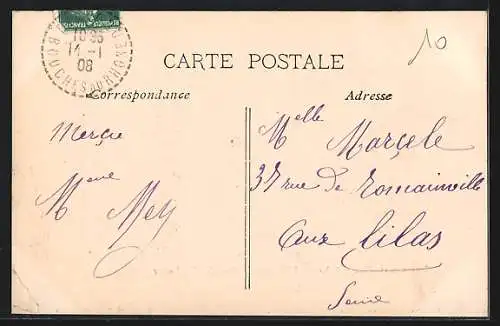 10
10 35
14 - 1
08
BOUCHES DU RHONE
CARTE POSTALE
Correspondance
Adresse
Mercie
Mme Mey
Melle Marcele
37 rue de Romainville
aux lilas
Seine